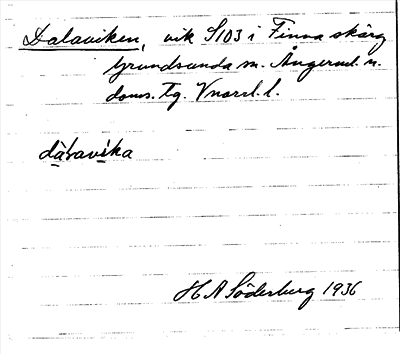 Dalaviken, vik S 103 i Finna skärg
Grundsunda sn. Ångerml. n.
doms. tg. Vnorrl. l.
dàlavika
H A Söderberg 1936